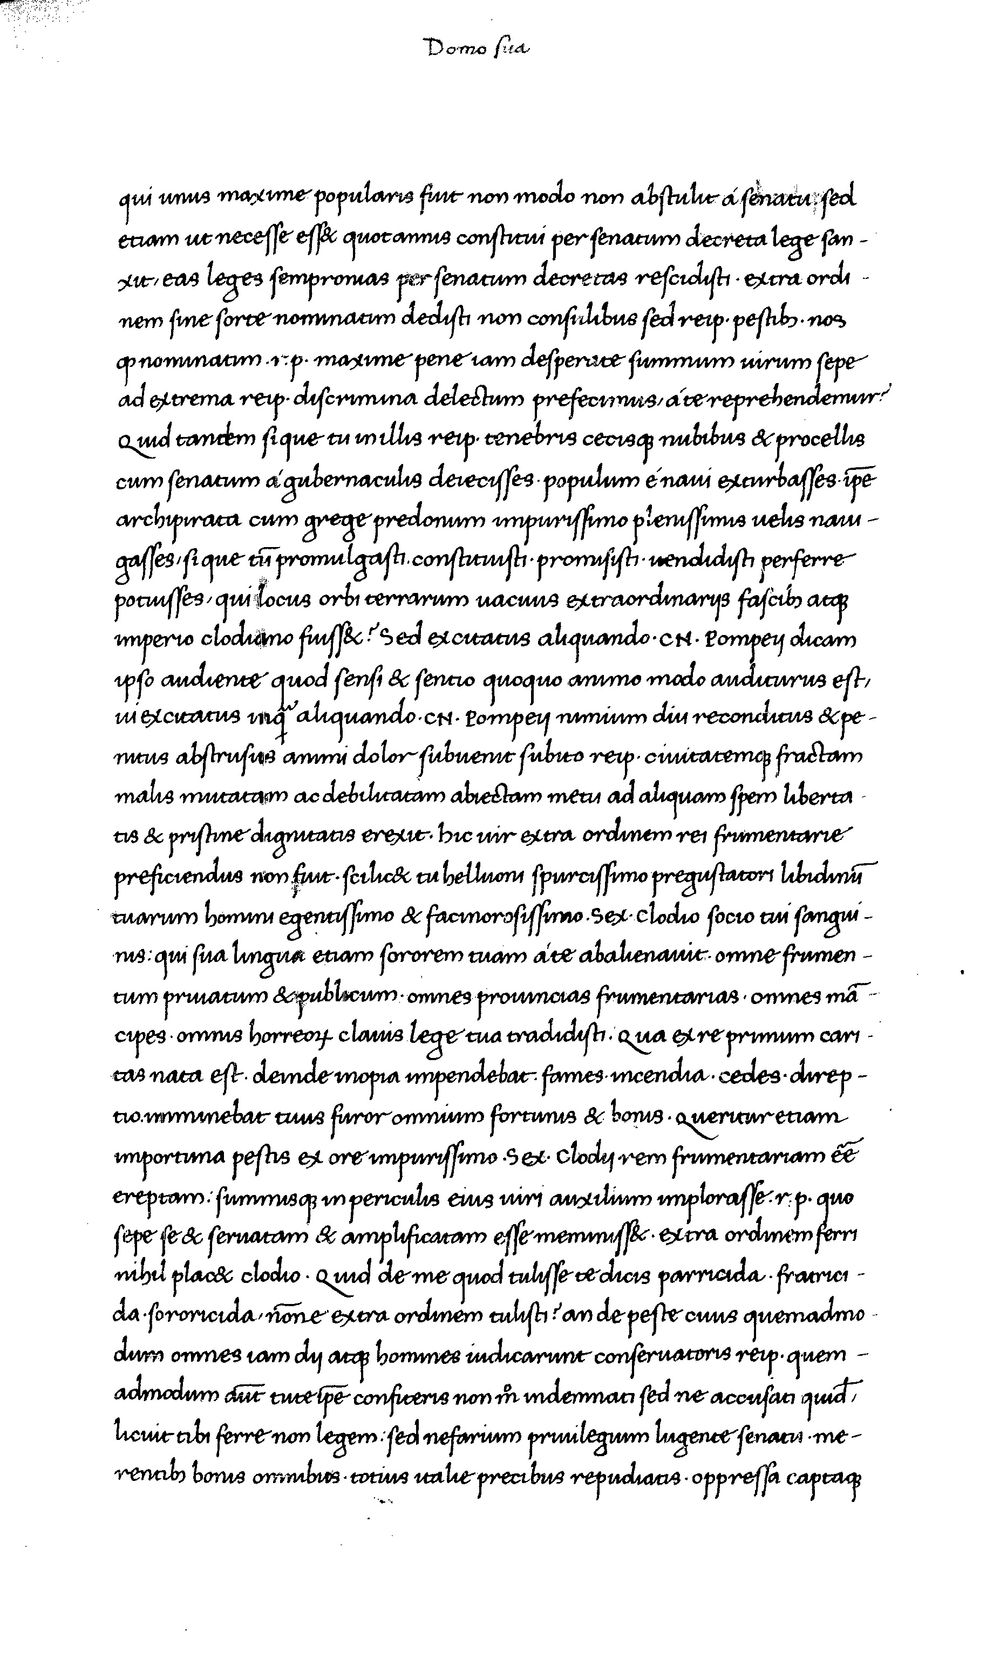 Domo sua
qui unus maxime popularis fuit non modo non abstulit á senatu: sed
etiam ut necesse ess& quotannis constitui per senatum decreta lege san-
xit, eas leges sempronias per senatum decretas rescidisti · extra ordi-
nem sine sorte nominatim dedisti non consulibus sed reip· pestib; · nos
qꝫ nominatim .r.p. maxime pene iam desperate summum uirum sepe
ad extrema reip· discrimina delectum prefecimus, á te reprehendemur?
Quid tandem si que tu in illis reip· tenebris cecisqꝫ nubibus & procellis
cum senatum á gubernaculis deiecisses· populum é naui exturbasses· ip̅e
archipirata cum grege predonum impurissimo plenissimis uelis naui-
gasses, si que tu̅ promulgasti. constituisti· promisisti· uendidisti perferre
potuisses, qui locus orbi terrarum uacuus extraordinarijs fascib; atqꝫ
imperio clodiano fuiss&? Sed excitatus aliquando· CN· Pompeij dicam
ipso audiente quod sensi & sentio quoquo animo modo auditurus est,
ui excitatus inqꝫ aliquando· CN· Pompeij nimium diu reconditus & pe-
nitus abstrusus animi dolor subuenit subito reip· ciuitatemqꝫ fractam
malis mutatam ac debilitatam abiectam metu ad aliquam spem liberta-
tis & pristine dignitatis erexit· hic uir extra ordinem rei frumentarie
preficiendus non fuit· scilic& tu helluoni spurcissimo pregustatori libidinu̅
tuarum homini egentissimo & facinorosissimo· Sex· Clodio socio tui sangui-
nis: qui sua lingua etiam sororem tuam á te abalienauit· omne frumen-
tum priuatum & publicum· omnes prouincias frumentarias· omnes ma̅-
cipes· omnis horreoꝝ clauis lege tua tradidisti. Qua ex re primum cari-
tas nata est· deinde inopia impendebat· fames· incendia· cedes· direp-
tio. imminebat tuus furor omnium fortunis & bonis· Queritur etiam
importuna pestis ex ore impurissimo· Sex· Clodij rem frumentariam e̅e̅
ereptam: summisqꝫ in periculis eius uiri auxilium implorasse .r.p. quo
sepe se & seruatam & amplificatam esse meminiss&· extra ordinem ferri
nihil plac& clodio· Quid de me quod tulisse te dicis parricida· fratrici-
da· sororicida, no̅ne extra ordinem tulisti? an de peste ciuis quemadmo-
dum omnes iam dij atqꝫ homines iudicarunt conseruatoris reip· quem-
admodum au̅t tute ip̅e confiteris non m̊ indemnati sed ne accusati quid̅,
licuit tibi ferre non legem: sed nefarium priuilegium lugente senatu· me-
rentib; bonis omnibus· totius italie precibus repudiatis· oppressa captaqꝫ